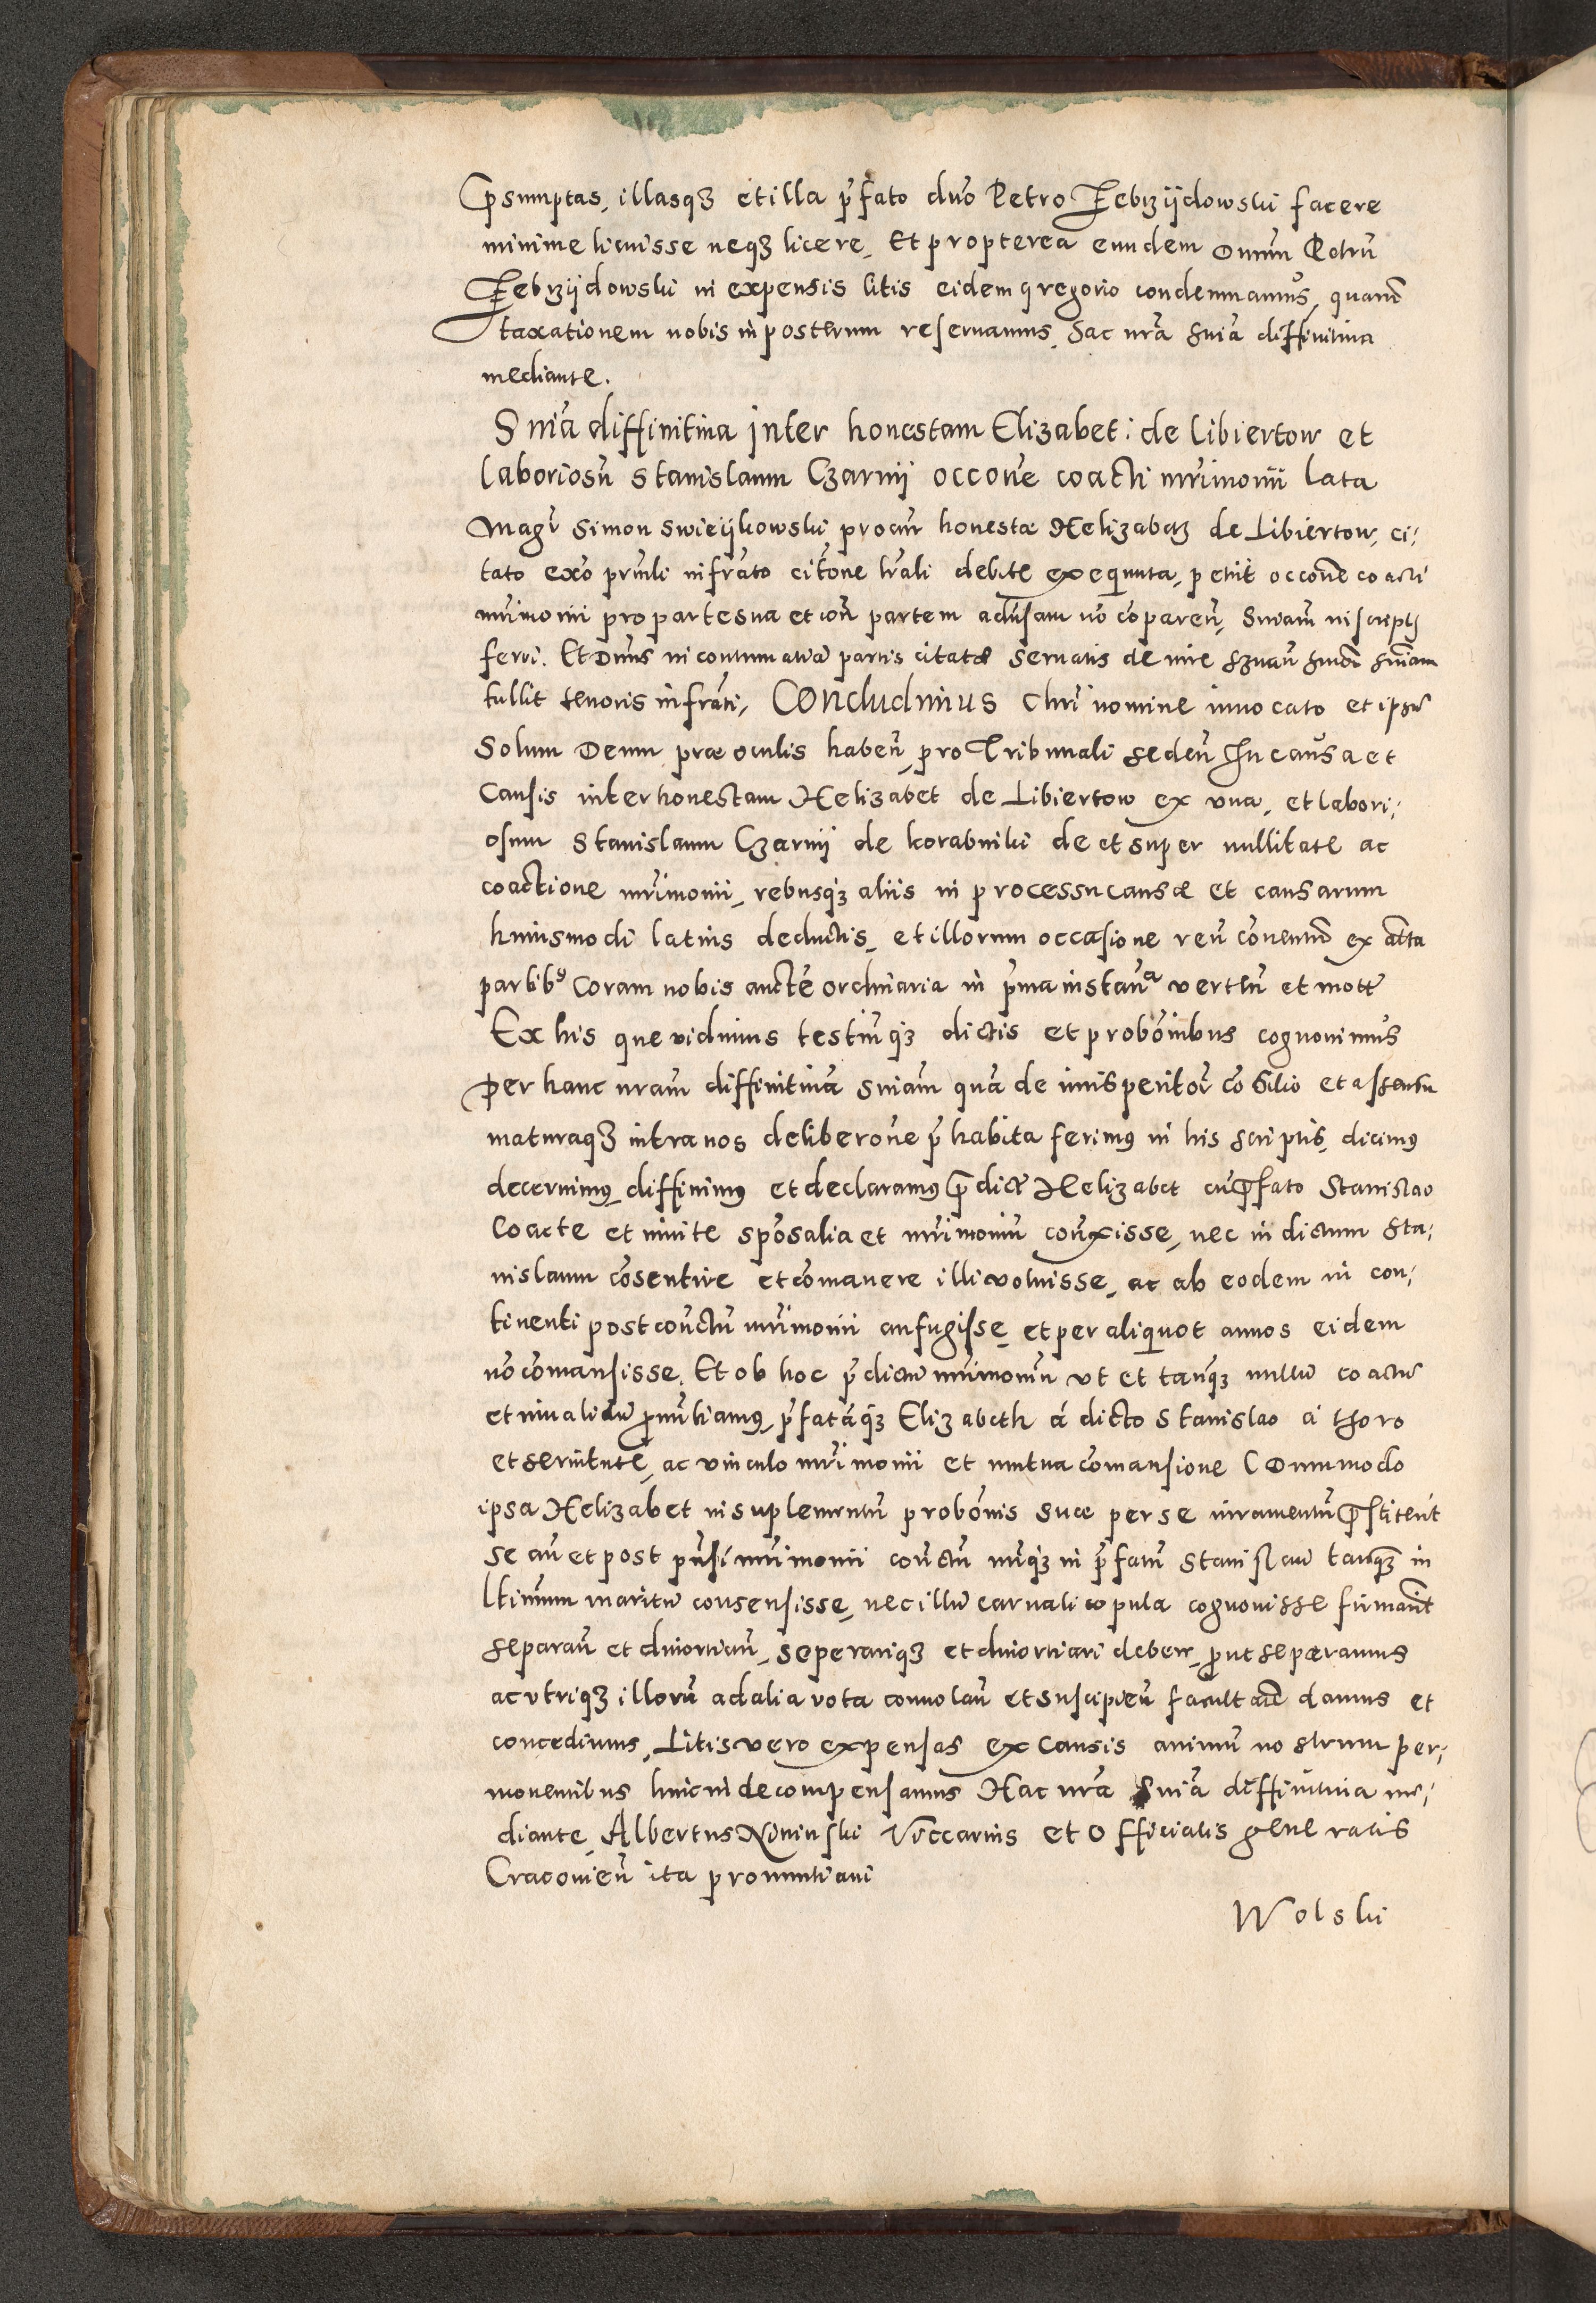 p̃sumptas, illasqꝫ et illa p̃fato dno Petro Zebrzijdowski facere
minime licuisse neqꝫ licere, Et propterea eundem Dnum Petrũ
Zebrzijdowski in expensis litis eidem gregorio condemnamus, quarũ
taxationem nobis in posterum reseruamus, hac nr̃a sñia diffinitiua
mediante.
Snĩa diffinitiua inter honestam Elizabet: de Libiertow et
laboriosũ Stanislaum Czarnij occoñe coacti mr̃imonii lata
Magr̃ Simon Swieijkowski procur̃ honestæ Helizabetꝫ de Libiertow, ci:
tato exo pr̃nli infrãto citõne lr̃ali debite exequuta, petiit occoñe coacti
mr̃imonii pro parte sua et coñ partem aduersam nõ cõpareñ, Sniam in scriptis
ferri. Et Dnus in contumatiã partis citatæ seruatis de iure seruañ snĩam
tullit tenoris infrãti, Concludimus Chrĩ nomine inuocato et ipsũ
Solum Deum præ oculis habeñ, pro Tribunali sedeñ In causa et
Causis inter honestam Helizabet de Libiertow ex vna, et labori:
osum Stanislaum Czarnij de korabniki de et super nullitate ac
coactione mr̃imonii, rebusqꝫ aliis in processu causæ et causarum
huiusmodi latius deductis, et illorum occasione reũ conuentũ ex altera
partibꝰ Coram nobis aucte ordinaria in p̃ma instanᵃ verteñ et motĩ
Ex his que vidimus testiũqꝫ dictis et probõinibus cognouimus
Per hanc nram diffinitiuã sniam quã de iurisperitoꝝ cõsilio et assensu
maturaqꝫ intra nos deliberoñe p̃habita ferimꝰ in his scriptis, dicimꝰ
decernimꝰ, diffinimꝰ et declaramꝰ p̃dictã Helizabet cũ p̃fato Stanislao
Coacte et inuite spõsalia et mr̃imoniũ cont̃xisse, nec in dictum Sta:
nislaum cõsentire et cõmanere illi voluisse, ac ab eodem in con:
tinenti post cont̃ctũ mr̃imonii aufugisse, et per aliquot annos eidem
nõ cõmansisse, Et ob hoc p̃dictũ mr̃imoniũ vt et tanqꝫ nullũ coactũ
et inualidũ pronũtiamꝰ, p̃fatãqꝫ Elizabeth á dicto Stanislao á thoro
et seruitute, ac vinculo mr̃imonii et mutua cõmansione Dummodo
ipsa Helizabet in suplementũ probõnis suæ per se iuramentũ p̃stiterit
se añ et post p̃nsĩ mr̃imonii cont̃ctũ nũqꝫ in p̃fatũ Stanislaũ tanqꝫ in
ltimum maritũ consensisse, nec illũ carnali copula cognouisse firmañt
separañ et diuortiañ, seperariqꝫ et diuortiari debere, prout separamus
ac vtriqꝫ illorũ ad alia vota conuolañ et suscipieñ facultatẽ damus et
concedimus, Litis vero expensas ex causis animũ nostrum per:
mouentibus hincinde compensamus Hac nrã Snĩa diffinitiua me:
diante, Albertus Nininski Viccarius et Officialis generalis
Cracouieñ ita pronuntiaui
Wolski